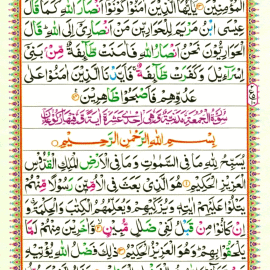 الْمُؤْمِنِيْنَ ۝ يٰۤاَيُّهَا الَّذِيْنَ اٰمَنُوْا كُوْنُوْۤا اَنْصَارَ اللّٰهِ كَمَا قَالَ
عِيْسَى ابْنُ مَرْيَمَ لِلْحَوَارِيّٖنَ مَنْ اَنْصَارِيْۤ اِلَى اللّٰهِ ؕ قَالَ
الْحَوَارِيُّوْنَ نَحْنُ اَنْصَارُ اللّٰهِ فَاٰمَنَتْ طَّآىِٕفَةٌ مِّنْۢ بَنِيْۤ
اِسْرَآءِيْلَ وَكَفَرَتْ طَّآىِٕفَةٌ ۚ فَاَيَّدْنَا الَّذِيْنَ اٰمَنُوْا عَلٰى
عَدُوِّهِمْ فَاَصْبَحُوْا ظٰهِرِيْنَ ۝
بِسْمِ اللّٰهِ الرَّحْمٰنِ الرَّحِيْمِ
يُسَبِّحُ لِلّٰهِ مَا فِي السَّمٰوٰتِ وَمَا فِي الْاَرْضِ الْمَلِكِ الْقُدُّوْسِ
الْعَزِيْزِ الْحَكِيْمِ ۝ هُوَ الَّذِيْ بَعَثَ فِي الْاُمِّيّٖنَ رَسُوْلًا مِّنْهُمْ
يَتْلُوْا عَلَيْهِمْ اٰيٰتِهٖ وَيُزَكِّيْهِمْ وَيُعَلِّمُهُمُ الْكِتٰبَ وَالْحِكْمَةَ ۗ وَ
اِنْ كَانُوْا مِنْ قَبْلُ لَفِيْ ضَلٰلٍ مُّبِيْنٍ ۝ وَّاٰخَرِيْنَ مِنْهُمْ لَمَّا
يَلْحَقُوْا بِهِمْ ؕ وَهُوَ الْعَزِيْزُ الْحَكِيْمُ ۝ ذٰلِكَ فَضْلُ اللّٰهِ يُؤْتِيْهِ